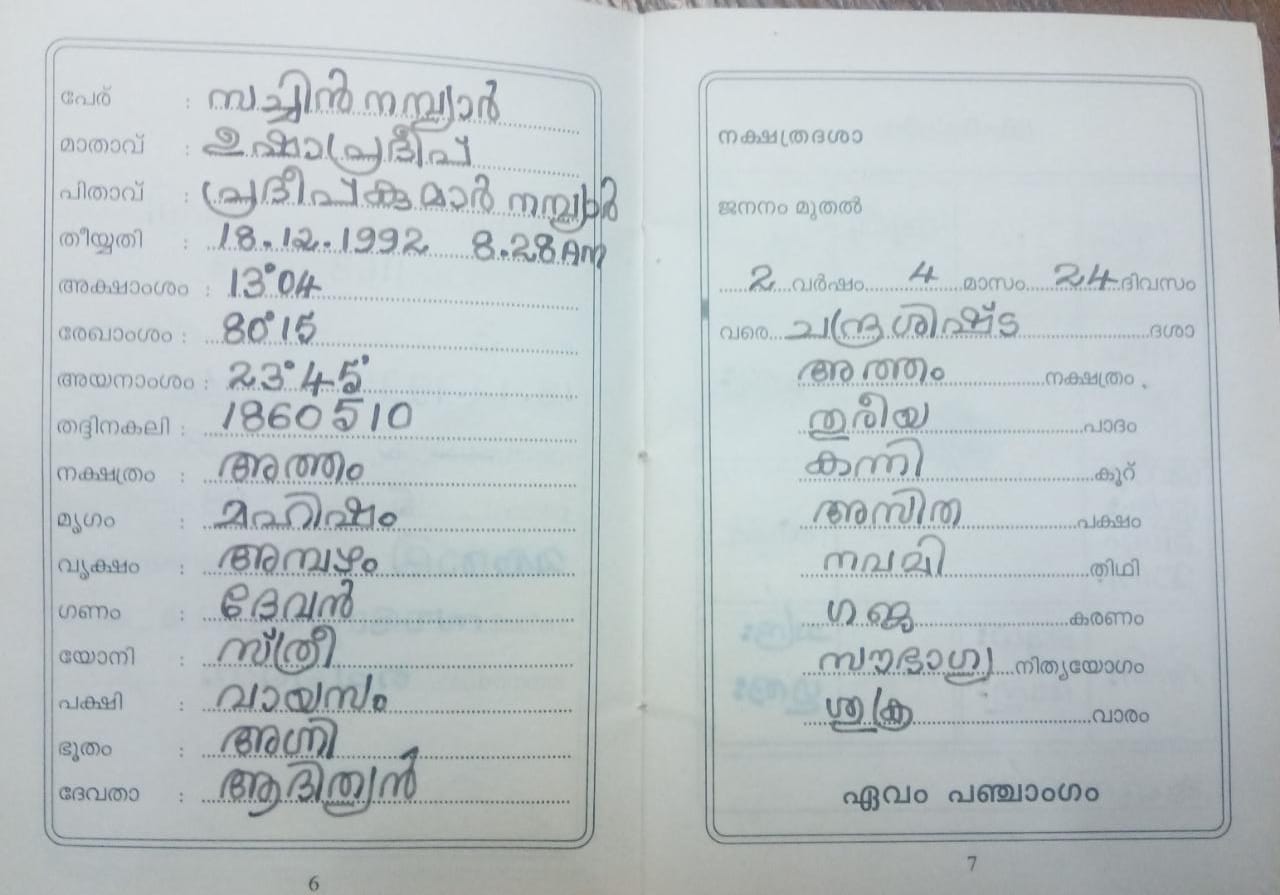 പേര് : സച്ചിൻ നമ്പ്യാർ
മാതാവ് : ഉഷാപ്രദീപ്
പിതാവ് : പ്രദീപ്കുമാർ നമ്പ്യാർ
തീയ്യതി : 18.12.1992 8.28Am
അക്ഷാംശം : 13°04
രേഖാംശം : 80°15
അയനാംശം : 23°45'
തദ്ദിനകലി : 1860510
നക്ഷത്രം : അത്തം
മൃഗം : മഹിഷം
വൃക്ഷം : അമ്പഴം
ഗണം : ദേവൻ
യോനി : സ്ത്രീ
പക്ഷി : വായസം
ഭൂതം : അഗ്നി
ദേവതാ : ആദിത്യൻ
6
നക്ഷത്രദശാ
ജനനം മുതൽ
2 വർഷം 4 മാസം 24 ദിവസം
വരെ ചന്ദ്രശിഷ്ട ദശാ
അത്തം നക്ഷത്രം
തുരീയ പാദം
കന്നി കൂറ്
അസിത പക്ഷം
നവമി തിഥി
ഗജ കരണം
സൗഭാഗ്യ നിത്യയോഗം
ശുക്ര വാരം
ഏവം പഞ്ചാംഗം
7